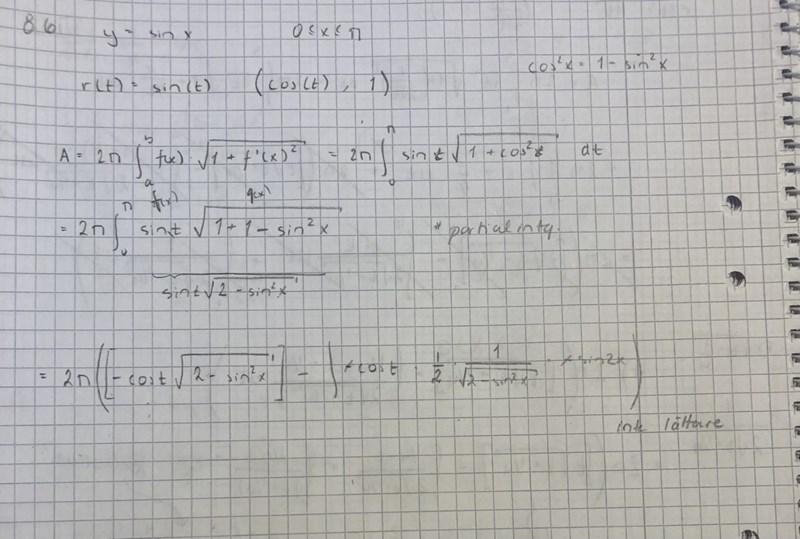 86 y = sin x 0 ≤ x ≤ π
cos²x = 1 - sin²x
r(t) = sin(t) (cos(t), 1)
A = 2π ∫ₐᵇ f(x) · √(1 + f'(x)²) = 2π ∫₀^π sin t √(1 + cos²t) dt
f(x) g(x)
= 2π ∫₀^π sin t √(1 + 1 - sin²x) * partial intg.
sin t √(2 - sin²x)
= 2π ([-cos t √(2 - sin²x)] - ∫ cos t · 1/2 · 1/√(2 - sin²x) · sin2x)
inte lättare